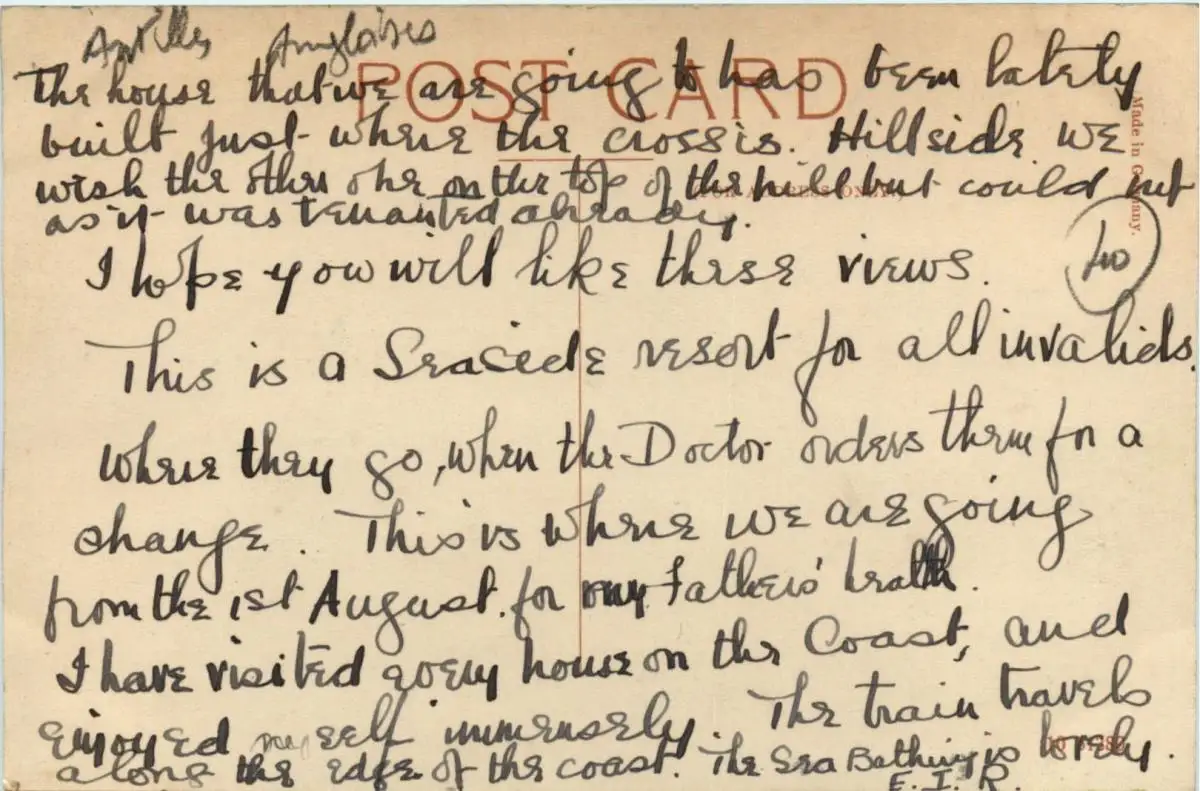 Antilles Anglaises
POST CARD
The house that we are going to has been lately
built just where the cross is. Hillside we
wish the other one on the top of the hill but could not
as it was tenanted already.
FOR ADDRESS ONLY.
Made in Germany.
I hope you will like these views.
40
This is a Seaside resort for all invalids.
where they go, when the Doctor orders them for a
change. This is where we are going
from the 1st August. for my Fathers' health.
I have visited every house on the Coast, and
enjoyed myself immensely. The train travels
along the edge of the coast. The Sea Bathing is lovely.
E. I. R.